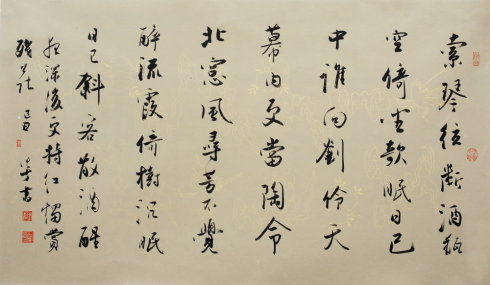 素琴絃断酒瓶
空倚坐欹眠日已
中誰向劉伶天
幕内更當陶令
北窓風尋芳不覺
醉流霞倚樹沉眠
日已斜客散酒醒
夜深後更持红燭賞
残花
書